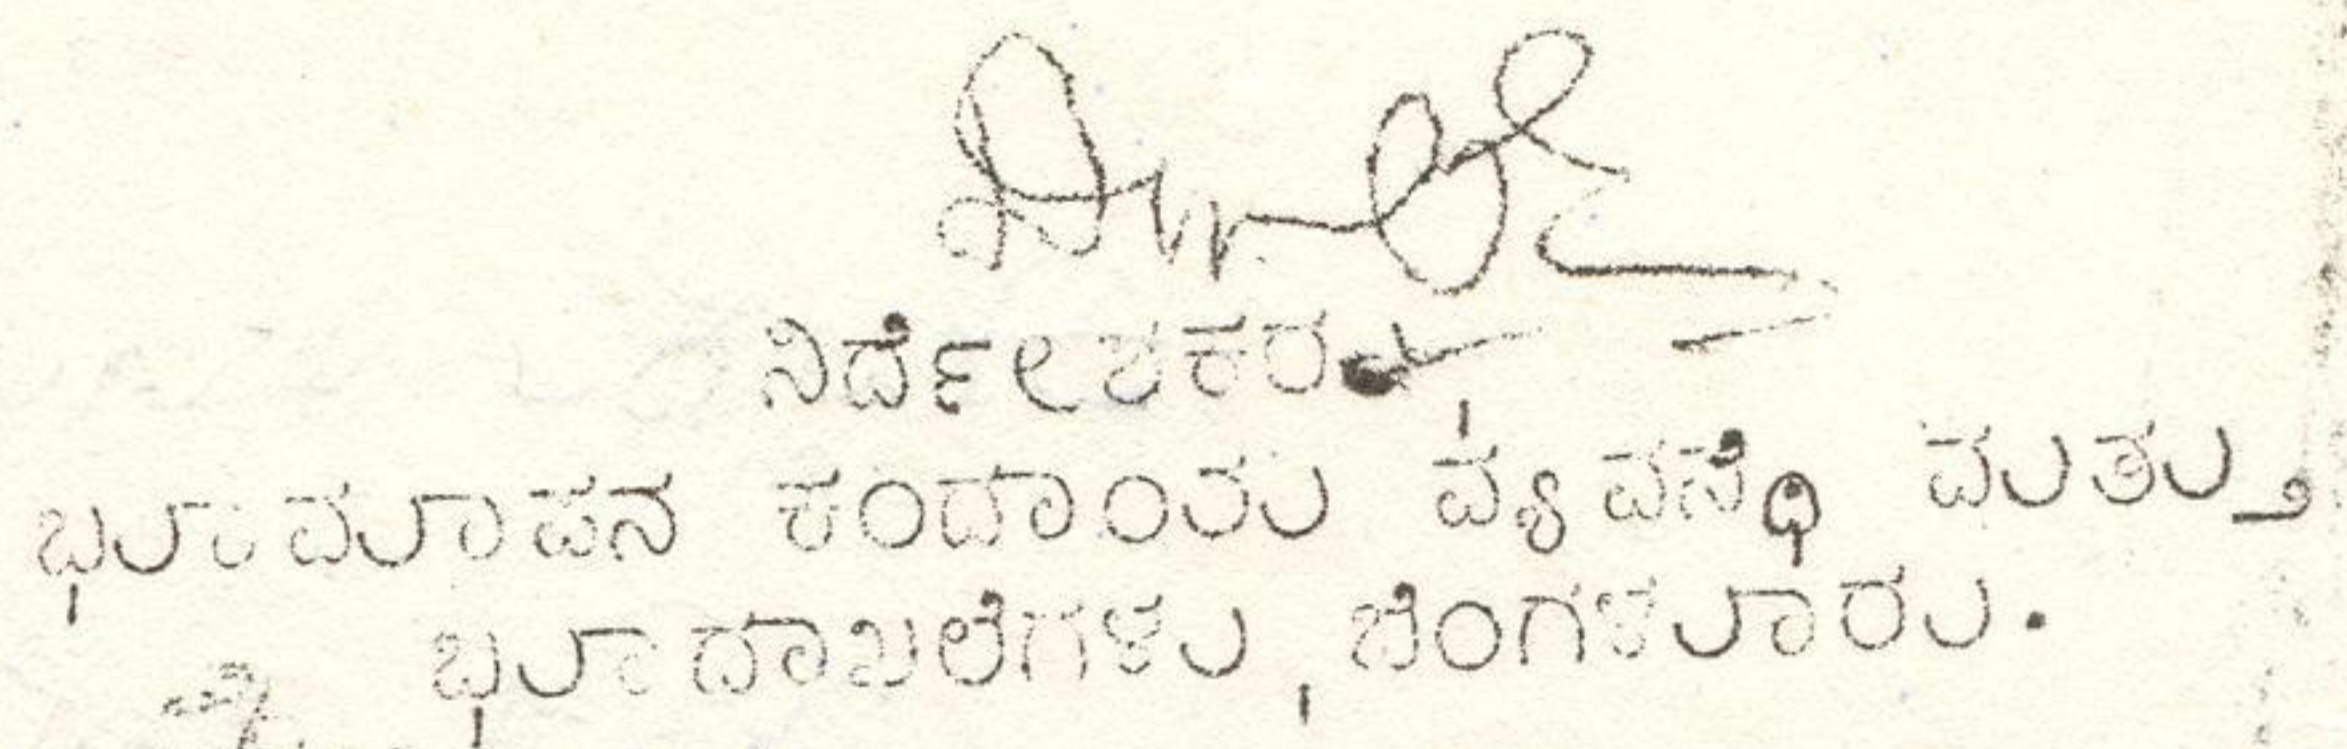 ನಿರ್ದೇಶಕರು
ಭೂಮಾಪನ ಕಂದಾಯ ವ್ಯವಸ್ಥೆ ಮತ್ತು
ಭೂದಾಖಲೆಗಳು, ಬೆಂಗಳೂರು.